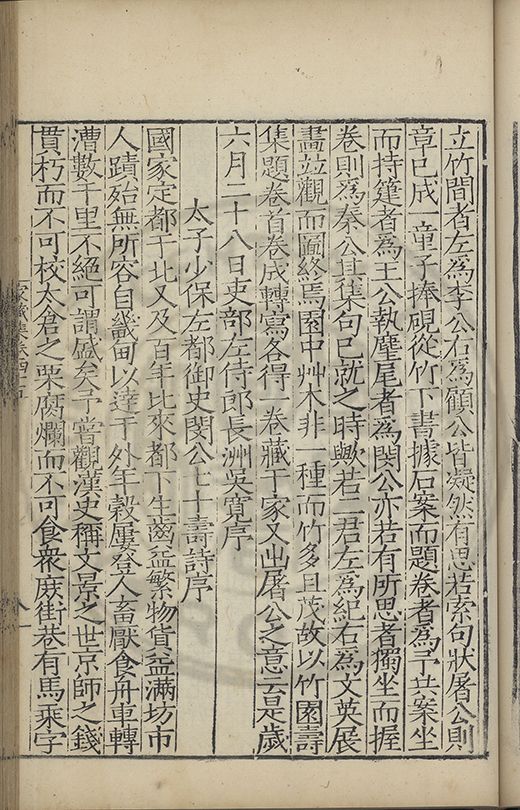 立竹間者左為李公右為顧公皆凝然有思若索句狀屠公則
章已成一童子捧硯從竹下書據石案而題卷者為予共案坐
而持箑者為王公執麈尾者為閔公亦若有所思者獨坐而握
卷則為秦公其集句已就之時歟若二君左為紀右為文英展
畵並觀而圖終焉園中艸木非一種而竹多且茂故以竹園壽
集題卷首卷成轉寫各得一卷藏于家又出屠公之意云是歲
六月二十八日吏部左侍郎長洲吳寬序
太子少保左都御史閔公七十壽詩序
國家定都于北又及百年比來都下生齒益繁物貨益滿坊市
人蹟殆無所容自畿甸以達于外年穀屢登人畜厭食舟車轉
漕數千里不絕可謂盛矣予嘗觀漢史稱文景之世京師之錢
貫朽而不可校太倉之粟腐爛而不可食衆庶街巷有馬乗字
家藏集卷四十五
八